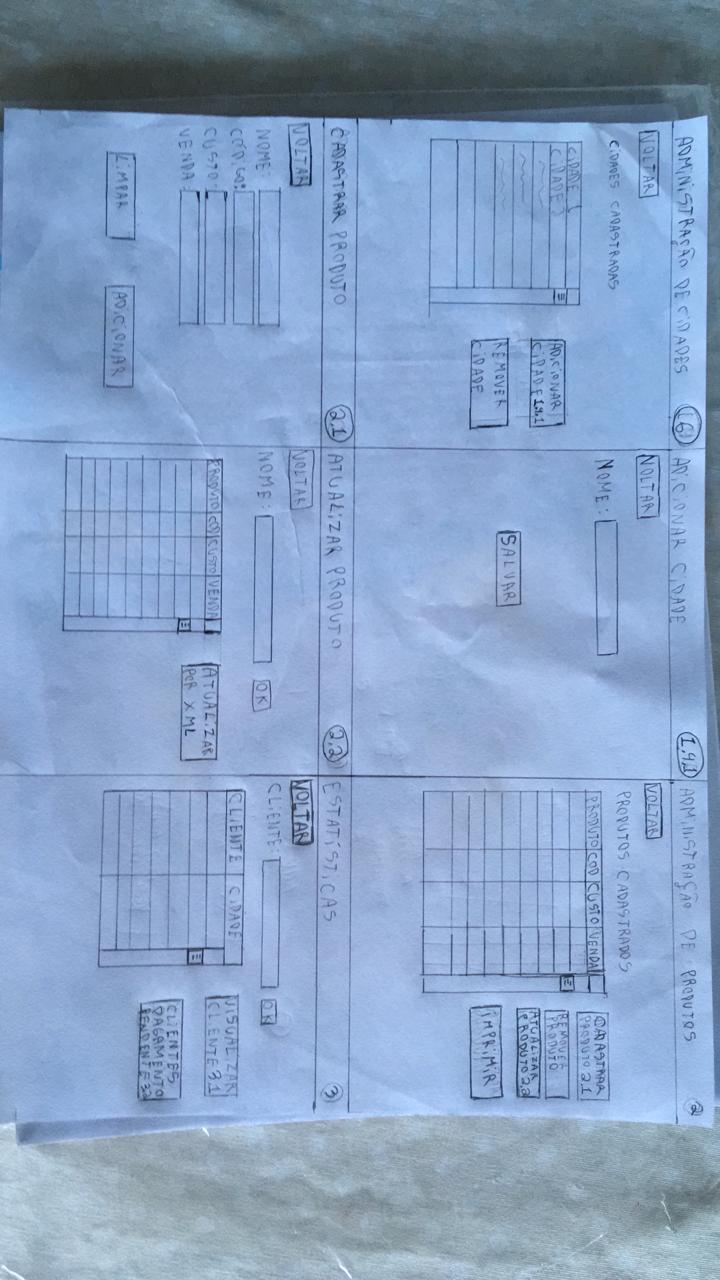 ADMINISTRAÇÃO DE CIDADES
VOLTAR
CIDADES CADASTRADAS
CIDADE 1
CIDADE 2
ADICIONAR
CIDADE 1.4.1
REMOVER
CIDADE
ADICIONAR CIDADE 1.4.1
VOLTAR
NOME:
SALVAR
ADMINISTRAÇÃO DE PRODUTOS 2
VOLTAR
PRODUTOS CADASTRADOS
PRODUTO COD CUSTO VENDA
CADASTRAR
PRODUTO 2.1
REMOVER
PRODUTO
ATUALIZAR
PRODUTO 2.2
IMPRIMIR
CADASTRAR PRODUTO 2.1
VOLTAR
NOME:
CÓDIGO:
CUSTO:
VENDA:
LIMPAR ADICIONAR
ATUALIZAR PRODUTO 2.2
VOLTAR
NOME: OK
PRODUTO COD CUSTO VENDA
ATUALIZAR
POR XML
ESTATÍSTICAS 3
VOLTAR
CLIENTE: OK
CLIENTE CIDADE
VISUALIZAR
CLIENTE 3.1
CLIENTES
PAGAMENTO
PENDENTE 3.2